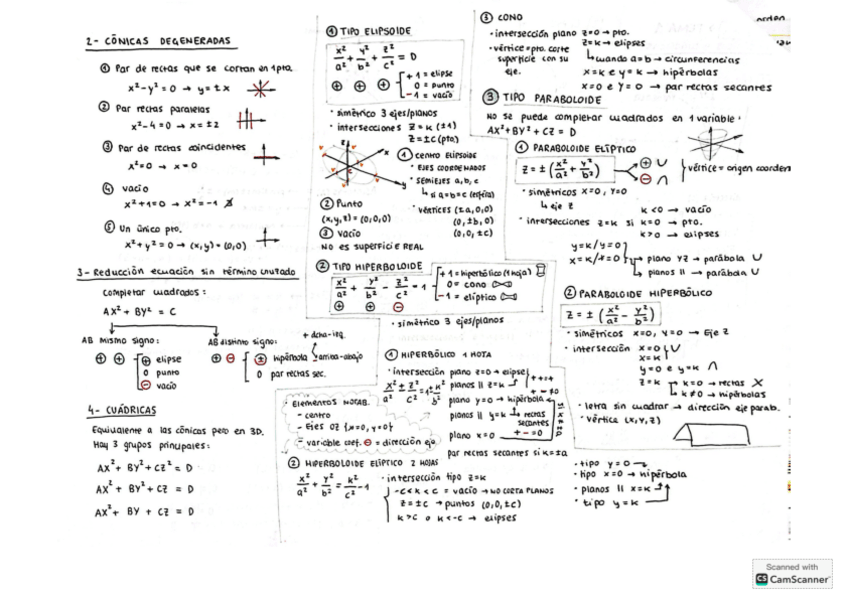 2- CÓNICAS DEGENERADAS
① Par de rectas que se cortan en 1 pto.
x²-y² = 0 → y = ± x
② Par rectas paralelas
x²-4 = 0 → x = ±2
③ Par de rectas coincidentes
x² = 0 → x = 0
④ vacío
x²+1 = 0 → x² = -1 ∄
⑤ Un único pto.
x²+y² = 0 → (x,y) = (0,0)
3- Reducción ecuación sin término cruzado
Completar cuadrados:
AX² + BY² = C
AB mismo signo:
⊕ ⊕
⊕ elipse
0 punto
⊖ vacío
AB distinto signo:
⊕ ⊖
+ dcha-izq.
± hipérbola
arriba-abajo
0 par rectas sec.
4- CUÁDRICAS
Equivalente a las cónicas pero en 3D.
Hay 3 grupos principales:
AX² + BY² + CZ² = D
AX² + BY² + CZ = D
AX² + BY + CZ = D
① TIPO ELIPSOIDE
x²/a² + y²/b² + z²/c² = D
⊕ ⊕ ⊕
+1 = elipse
0 = punto
-1 = vacío
· simétrico 3 ejes/planos
· intersecciones z = k (±1)
z = ±c (pto)
① CENTRO ELIPSOIDE
· EJES COORDENADOS
· SEMIEJES a, b, c
↳ si a=b=c (esfera)
· VÉRTICES (±a,0,0)
(0,±b,0)
(0,0,±c)
② Punto
(x,y,z) = (0,0,0)
③ vacío
NO es superficie REAL
② TIPO HIPERBOLOIDE
x²/a² + y²/b² - z²/c² = 1
⊕ ⊕ ⊖
+1 = hiperbólico (1 hoja)
0 = cono
-1 = elíptico
· simétrico 3 ejes/planos
① HIPERBÓLICO 1 HOJA
· intersección plano z=0 → elipse
planos || z=k
plano y=0 → hipérbola
planos || y=k → rectas secantes
+ - = 0
plano x=0
par rectas secantes si k=±a
ELEMENTOS NOTAB.
- centro
- Ejes OZ {x=0, y=0}
- variable coef. ⊖ = dirección eje
② HIPERBOLOIDE ELÍPTICO 2 HOJAS
x²/a² + y²/b² = k²/c² - 1
· intersección tipo z=k
-c<k<c = vacío → NO CORTA PLANOS
z = ±c → puntos (0,0,±c)
k>c o k<-c → elipses
③ CONO
· intersección plano z=0 → pto.
z=k → elipses
· vértice = pto. corte superficie con su eje.
↳ cuando a=b → circunferencias
x=k e y=k → hipérbolas
x=0 e y=0 → par rectas secantes
③ TIPO PARABOLOIDE
NO se puede completar cuadrados en 1 variable:
AX² + BY² + CZ = D
① PARABOLOIDE ELÍPTICO
z = ± (x²/a² + y²/b²)
⊕ ∪
⊖ ∩
vértice = origen coorden
· simétricos x=0, y=0
↳ eje z
· intersecciones z=k si
k<0 → vacío
k=0 → pto.
k>0 → elipses
y=k / y=0
x=k / x=0
plano YZ → parábola ∪
planos || → parábola ∪
② PARABOLOIDE HIPERBÓLICO
z = ± (x²/a² - y²/b²)
· simétricos x=0, y=0 → Eje z
· intersección x=0
x=k
∪
y=0 e y=k ∩
z=k
k=0 → rectas X
k≠0 → hipérbolas
· letra sin cuadrar → dirección eje parab.
· vértice (x,y,z)
· tipo y=0
· tipo x=0 → hipérbola
· planos || x=k
· tipo y=k
Scanned with
CS CamScanner